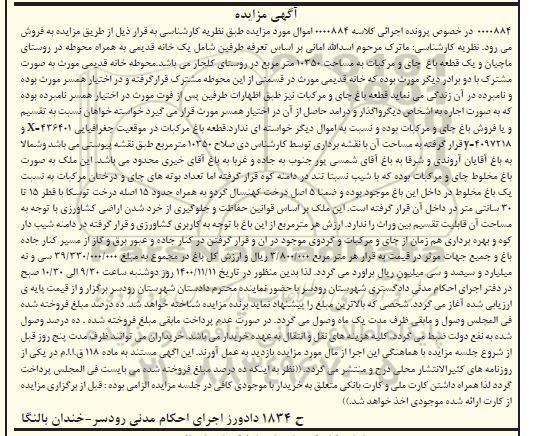 آگهی مزایده
۰۰۰۰۸۸۴ در خصوص پرونده اجرائی کلاسه ۰۰۰۰۸۸۴ اموال مورد مزایده طبق نظریه کارشناسی به قرار ذیل از طریق مزایده به فروش
می رود. نظریه کارشناسی: ماترک مرحوم اسدالله امانی بر اساس تعرفه طرفین شامل یک خانه قدیمی به همراه محوطه در روستای
ماچیان و یک قطعه باغ چای و مرکبات به مساحت ۱۰۳۵۰ متر مربع در روستای کلجار می باشد.محوطه خانه قدیمی مورث به صورت
مشترک با دو برادر دیگر مورث بوده که خانه قدیمی مورث در قسمتی از این محوطه مشترک قرارگرفته و در اختیار همسر مورث بوده
و نامبرده در آن زندگی می نماید قطعه باغ چای و مرکبات نیز طبق اظهارات طرفین پس از فوت مورث در اختیار همسر نامبرده بوده
که به صورت اجاره به اشخاص دیگرواگذار و درامد حاصل از آن در اختیار همسر مورث قرار می گیرد خواسته خواهان نسبت به تقسیم
و یا فروش باغ چای و مرکبات بوده و نسبت به اموال دیگر خواسته ای ندارد.قطعه باغ مرکبات در موقعیت جغرافیایی X-۴۳۶۴۰۱ و
y-۴۰۹۷۲۱۸ قرار گرفته به مساحت آن با نقشه برداری توسط کارشناس دی صلاح ۱۰۳۵۰ مترمربع طبق نقشه پیوستی می باشد وشمالا
به باغ آقایان آروندی و شرقا به باغ آقای شمسی پور جنوب به جاده و غربا به باغ آقای خیری محدود می باشد. این ملک به صورت
باغ مخلوط چای و مرکبات بوده که با شیب نسبتا تند در دامنه کوه قرار گرفته اما تعداد بوته های چای و درختان مرکبات به نسبت
یک باغ مخلوط در داخل این باغ موجود بوده و ضمنا ۵ اصل درخت کهنسال گردو به همراه حدود ۱۵ اصله درخت توسکا با قطر ۱۵ تا
۳۰ سانتی متر در داخل آن قرار گرفته است. این ملک بر اساس قوانین حفاظت و جلوگیری از خرد شدن اراضی کشاورزی با توجه به
مساحت آن قابلیت تقسیم بین وراث را ندارد. ارزش هر مترمربع از این باغ با توجه به کاربری کشاورزی و قرار گرفته در دامنه شیب دار
کوه و بهره برداری هم زمان از چای و مرکبات و گردوی موجود در ان و قرار گرفتن در کنار جاده و عبور برق و گاز از مسیر کنار جاده
باغ و جمیع جهات موثر در قیمت به قرار هر متر مربع ۳/۸۰۰/۰۰۰ ریال و ارزش کل باغ در مجموع به مبلغ ۳۹/۳۳۰/۰۰۰/۰۰۰ سی و نه
میلیارد و سیصد و سی میلیون ریال برآورد می گردد. لذا بدین منظور در تاریخ ۱۴۰۰/۱۱/۱۱ روز دوشنبه ساعت ۹/۳۰ الی ۱۰/۳۰ صبح
در دفتر اجرای احکام مدنی دادگستری شهرستان رودسر با حضور نماینده محترم دادستان شهرستان رودسر برگزار و از قیمت پایه ی
ارزیابی شده آغاز می گردد. شخصی که بالاترین مبلغ را پیشنهاد نماید برنده مزایده شناخته خواهد شد. ده درصد مبلغ فروخته شده
فی المجلس وصول و مابقی ظرف مدت یک ماه وصول می گردد. در صورت عدم پرداخت مابقی مبلغ فروخته شده . ده درصد وصول
شده به نفع دولت ضبط می گردد. کلیه هزینه های نقل و انتقال به عهده خریدار می باشد. خریداران می توانند ظرف مدت پنج روز قبل
از شروع جلسه مزایده با هماهنگی این اجرا از مال مورد مزایده بازدید به عمل آورند. این آگهی مستند به ماده ۱۱۸ ق.ا.ا.م در یکی از
روزنامه های کثیرالانتشار محلی درج و منتشر می گردد. ((نظر به اینکه ده درصد مبلغ فروخته شده می بایست فی المجلس پرداخت
گردد لذا همراه داشتن کارت ملی و کارت بانکی متعلق به خریدار با موجودی کافی در جلسه مزایده الزامی بوده : قبل از برگزاری مزایده
از کارت ارائه شده موجودی اخذ خواهد شد.))
ح ۱۸۳۴ دادورز اجرای احکام مدنی رودسر-خندان بالنگا